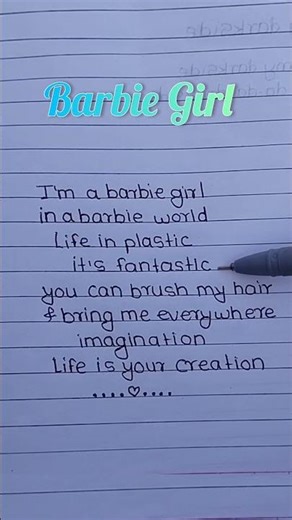 Barbie Girl
I'm a barbie girl
in a barbie world
Life in plastic
it's fantastic
you can brush my hair
& bring me everywhere
imagination
Life is your creation
....♡....